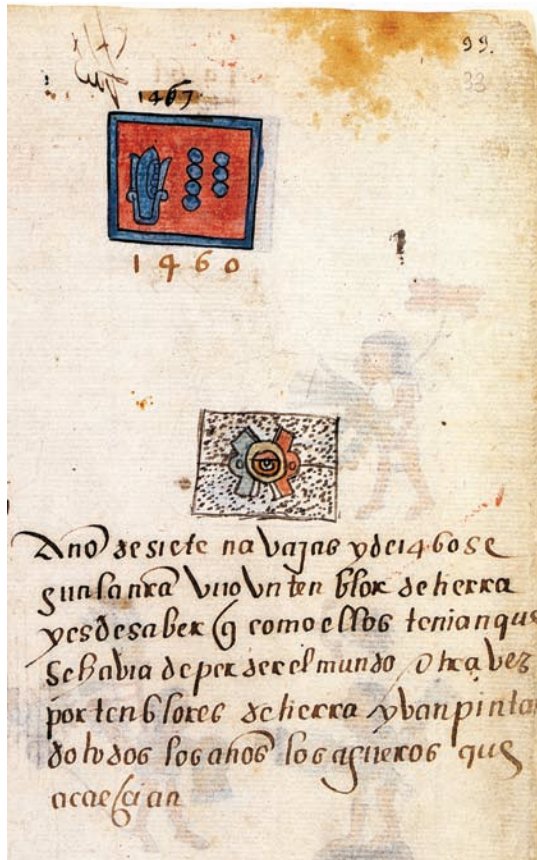 99.
33
1467
1460
Año de siete navajas y de 1460 se
gun la nra vuo vn ten blor de tierra
y es de saber q como ellos tenian que
se havia de perder el mundo otra vez
por tenblores de tierra yvan pintan
do todos los años los agueros que
acaescian